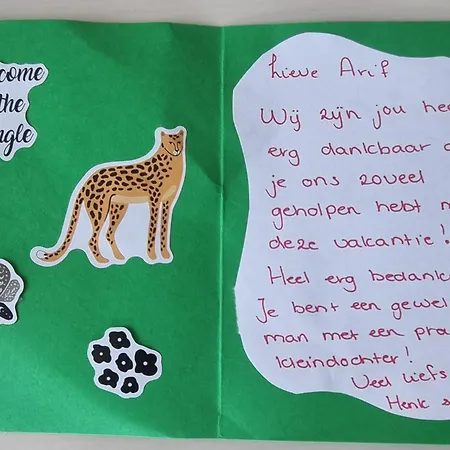 come
the
ngle
Lieve Arif
Wij zijn jou hee
erg dankbaar d
je ons zoveel
geholpen hebt m
deze vakantie!
Heel erg bedank
Je bent een gewel
man met een pra
kleindochter!
Veel liefs
Henk s